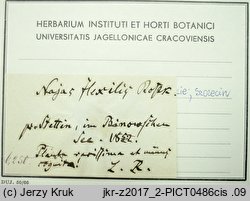 HERBARIUM INSTITUTI ET HORTI BOTANICI
UNIVERSITATIS JAGELLONICAE CRACOVIENSIS
Najas flexilis Rostk.
Szczecin
pr. Stettin, im
See. 1882.
Planta rarissima et
(c) Jerzy Kruk
jkr-z2017_2-PICT0486cis .09